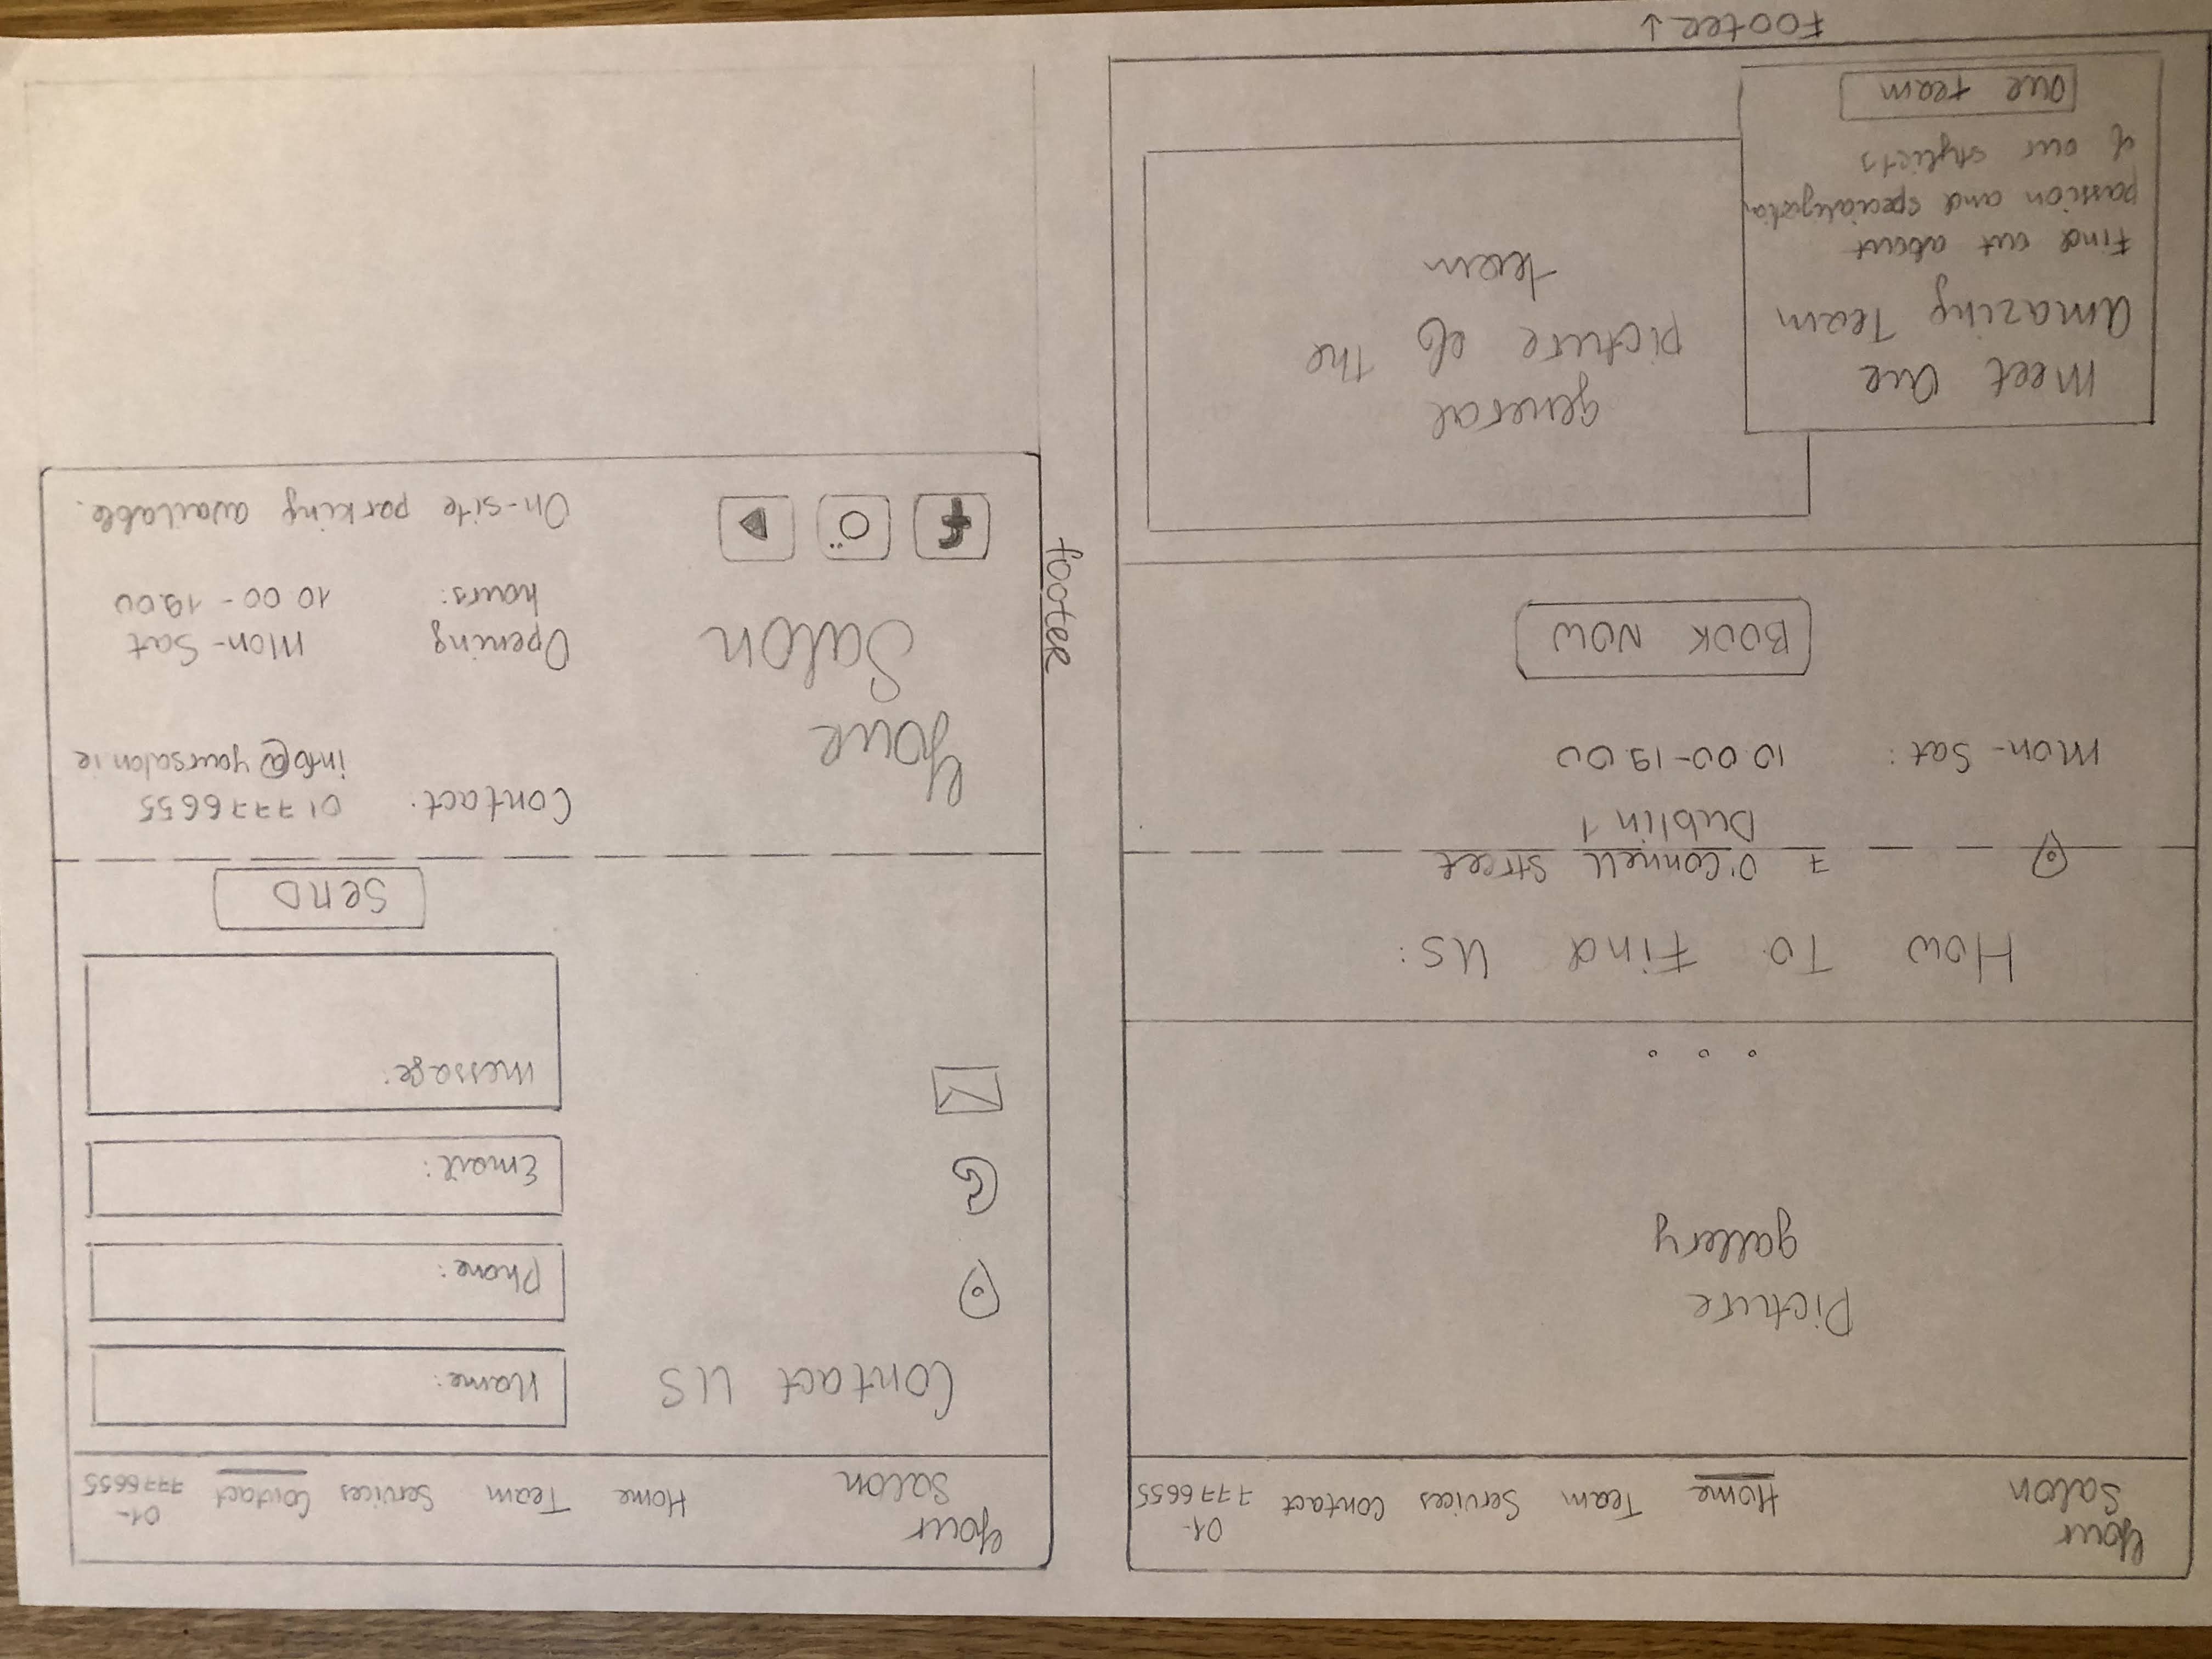 Your
Salon
Home Team Services Contact 01-
7776655
Picture
gallery
How To Find Us:
7 O'Connell Street
Dublin 1
Mon-Sat: 10.00-19.00
BOOK NOW
Meet Our
Amazing Team
Find out about
passion and specialization
of our stylists
Our team
general
picture of the
team
Footer ↓
Your
Salon
Home Team Services Contact 01-
7776655
Contact us
Name:
Phone:
Email:
Message:
SEND
footer
Your
Salon
f
Contact: 01 7776655
info@yoursalon.ie
Opening
hours:
Mon-Sat
10.00-19.00
On-site parking available.